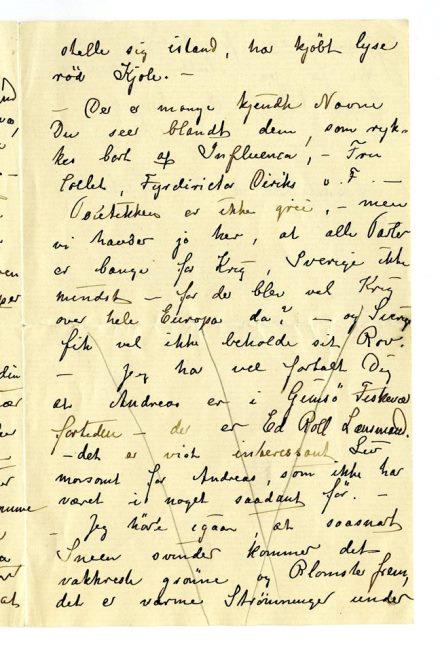 stelle sig istand, har kjöbt lyse
röd Kjole. –
– Der er mange kjendte Navne
Du seer blandt dem, som ryk-
kes bort af Influenca, – Fru
Collet, Fyrdirictör Diriks o. F. –
Politikken er ikke grei, – men
vi hauber jo her, at alle Parter
er bange for Krig, Sverige ikke
mindst – for der blev vel Krig
over hele Europa da? – og Sverig
fik vel ikke beholde sit Rov.
– Jeg har vel fortalt Dig
at Andreas er i Gimsö Fiskevær
fortiden – der er Ed Roll Lensmand.
– det er vist interessant Liv
morsomt for Andreas, som ikke har
været i noget saadant för. –
– Jeg hörte igaar, at saasnart
Sneen svinder kommer det
vakkreste grönne og Blomster frem,
det er varme Strömninger under